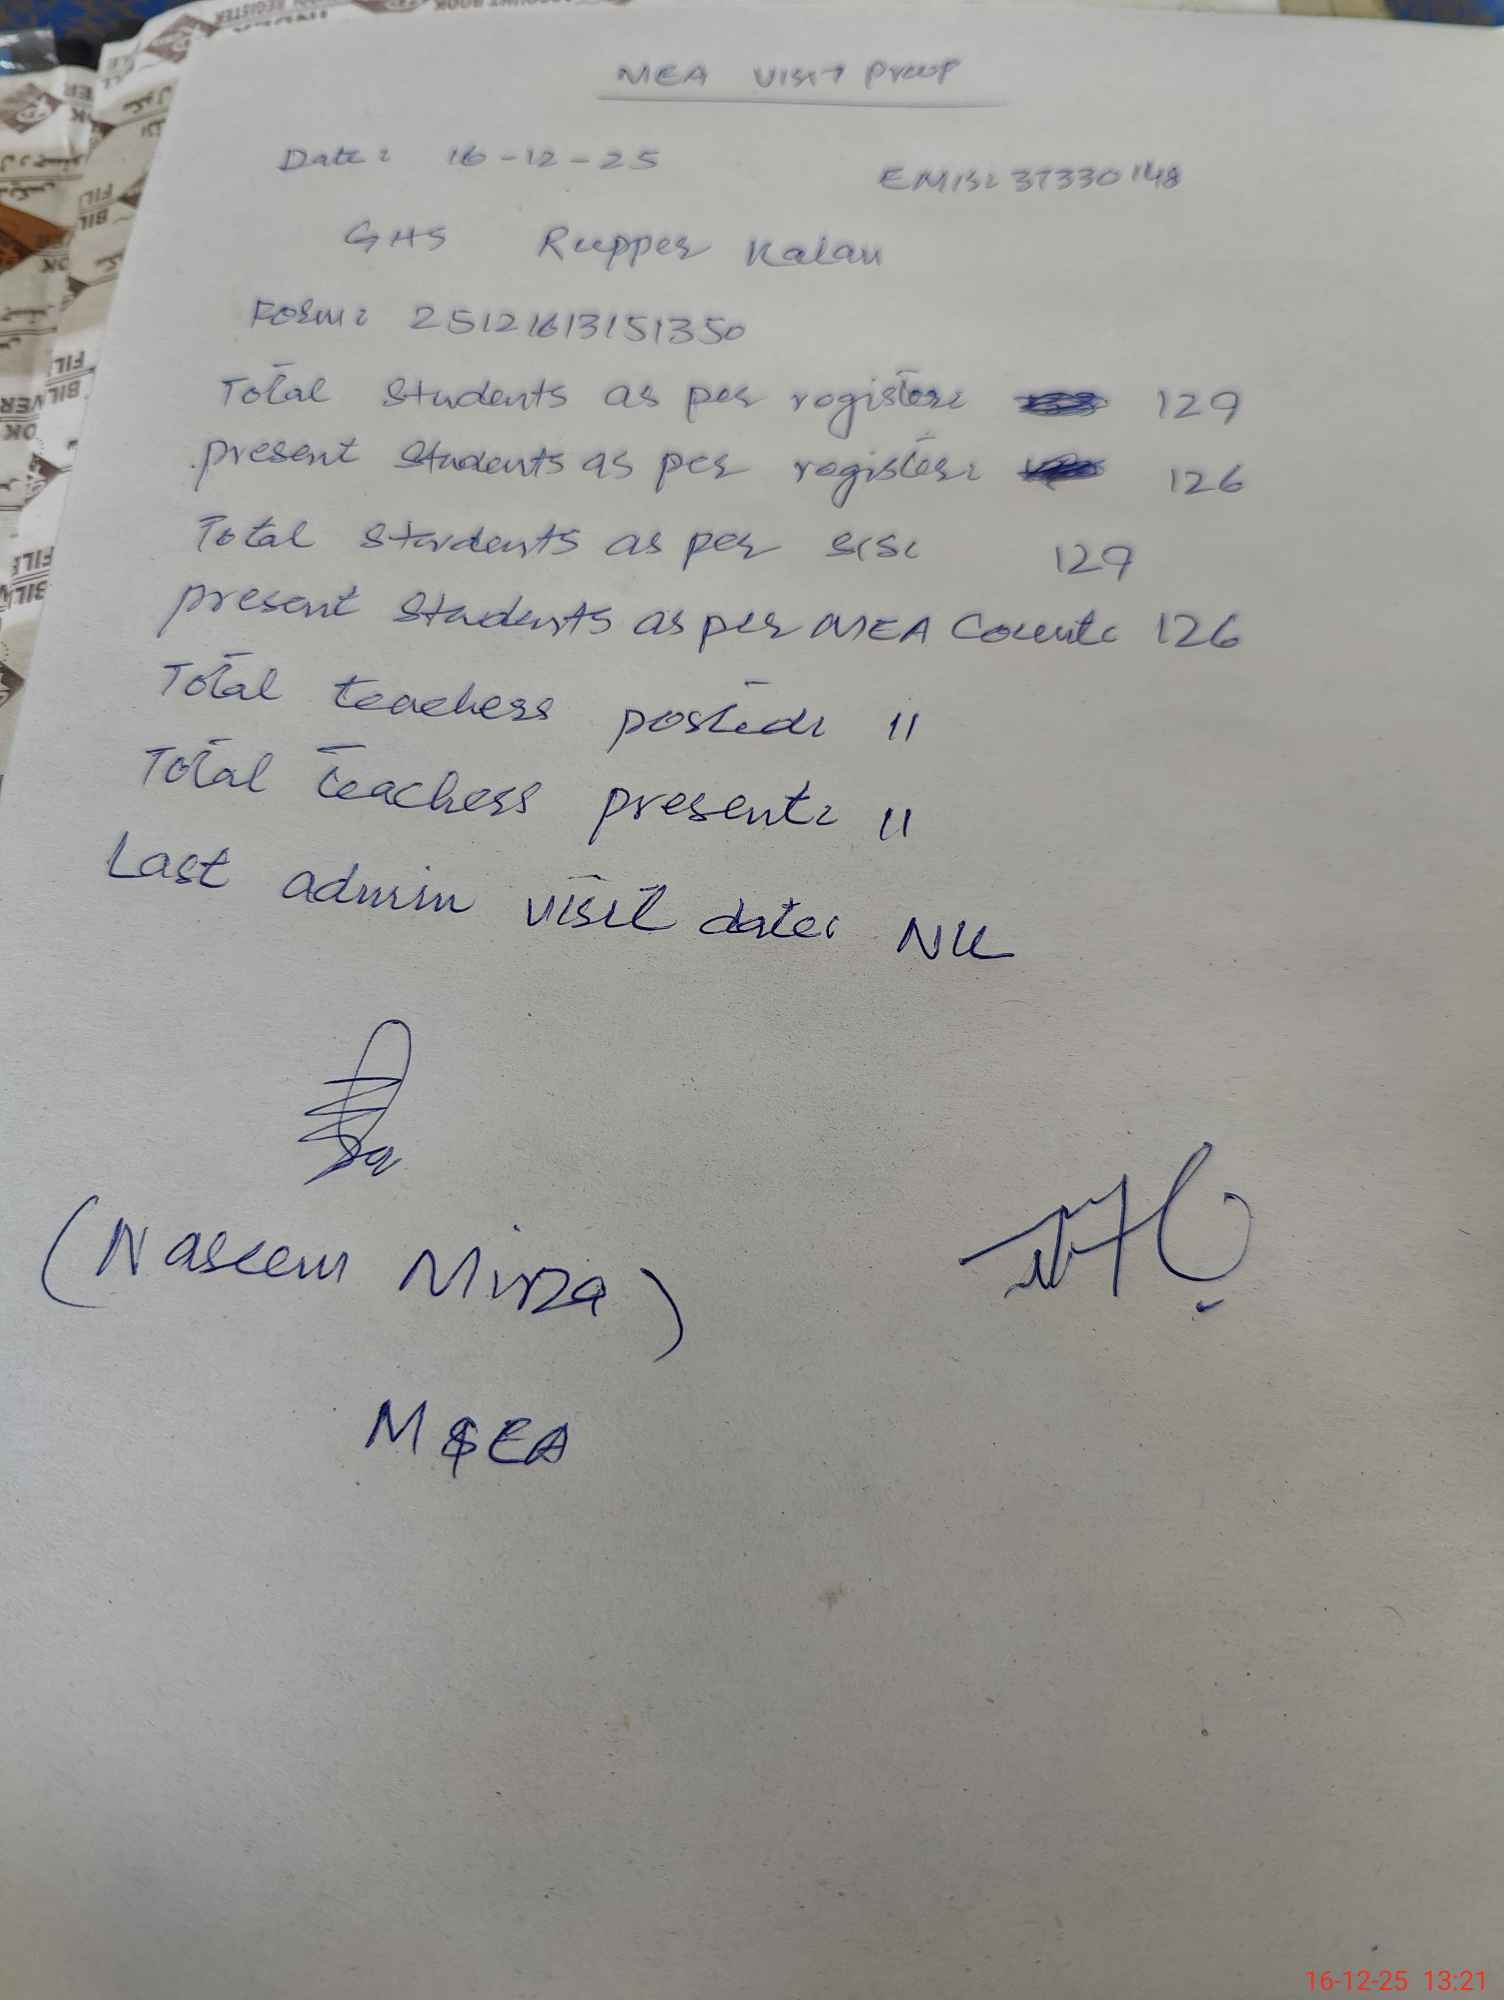 MEA Visit Proof
Date: 16-12-25
EMIS: 37330148
GHS Rupper Kalan
Form: 25121613151350
Total Students as per register 129
present Students as per register: 126
Total Students as per SIS: 129
present Students as per MEA Count: 126
Total teachers posted: 11
Total teachers present: 11
Last admin visit date: Nil
(Naseem Mirza)
MEA
16-12-25 13:21